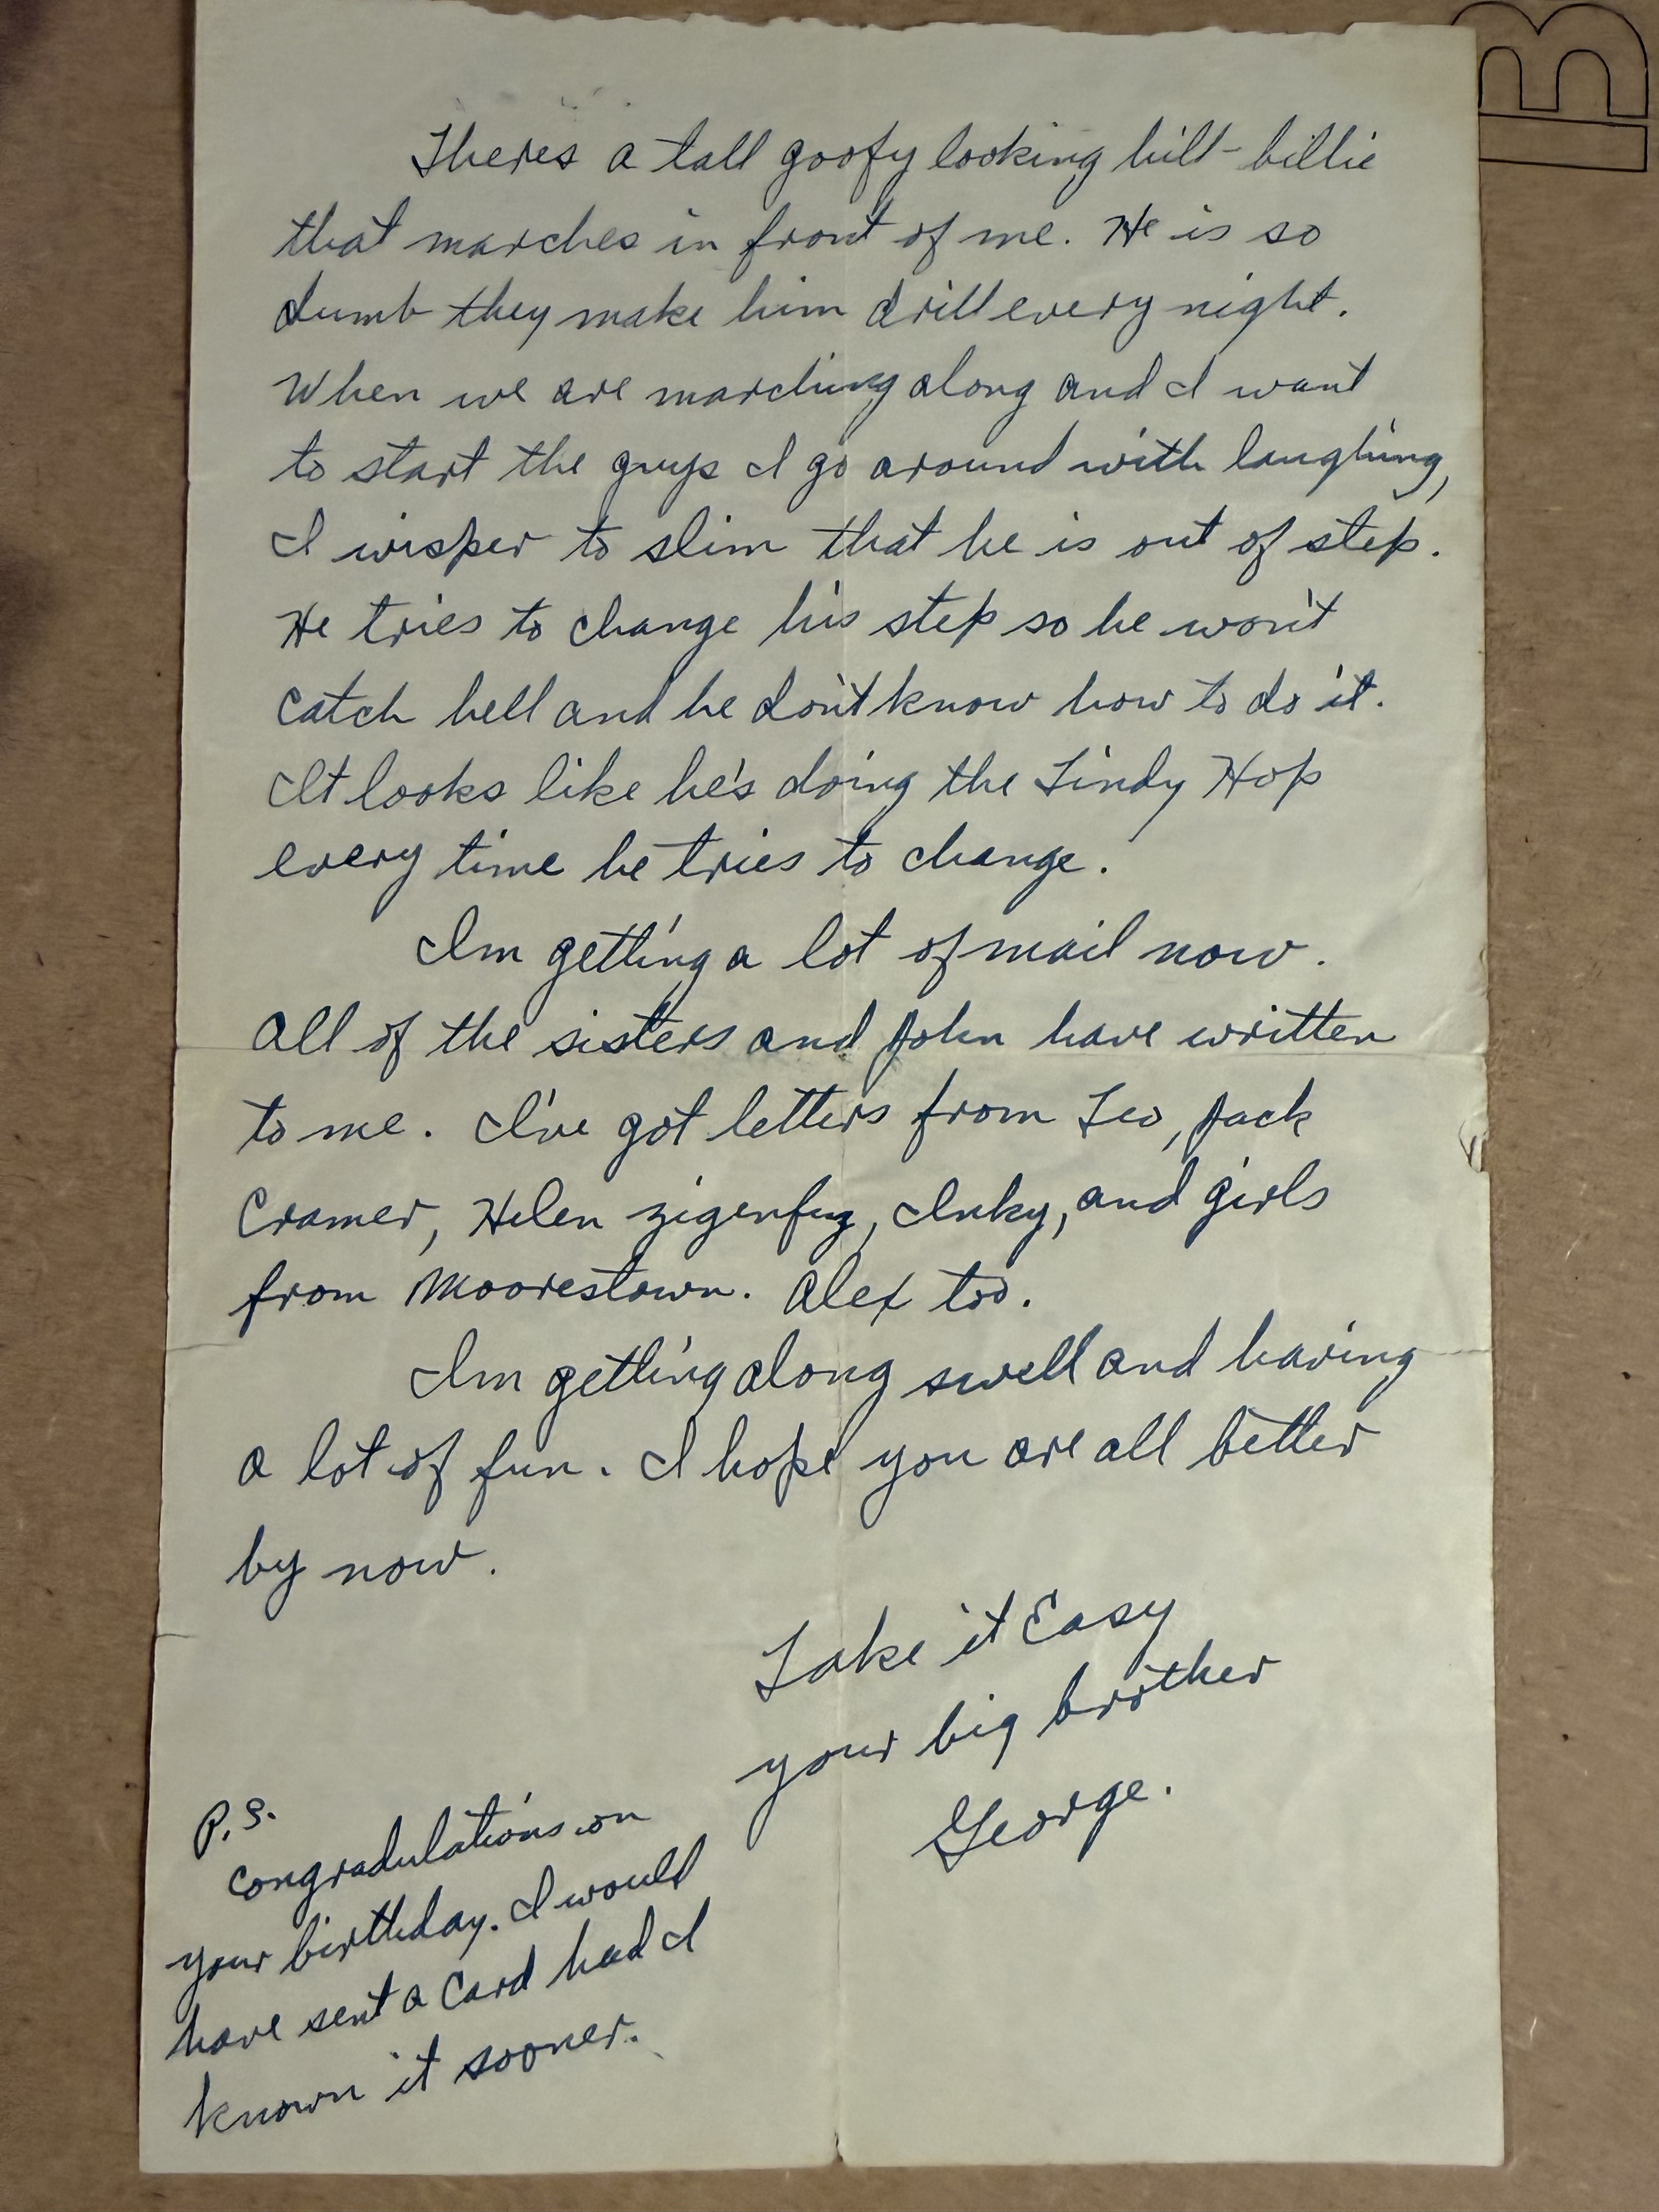 Theres a tall goofy looking hill-billie
that marches in front of me. He is so
dumb they make him drill every night.
When we are marching along and I want
to start the guys I go around with laughing,
I wisper to slim that he is out of step.
He tries to change his step so he won't
catch hell and he don't know how to do it.
It looks like he's doing the Lindy Hop
every time he tries to change.
Im getting a lot of mail now.
All of the sisters and John have written
to me. I've got letters from Leo, Jack
Cramer, Helen Zigenfuz, Inky, and girls
from Moorestown. Alex too.
Im getting along swell and having
a lot of fun. I hope you are all better
by now.
Take it Easy
your big brother
George.
P.S.
Congradulations on
your birthday. I would
have sent a Card had I
known it sooner.
B